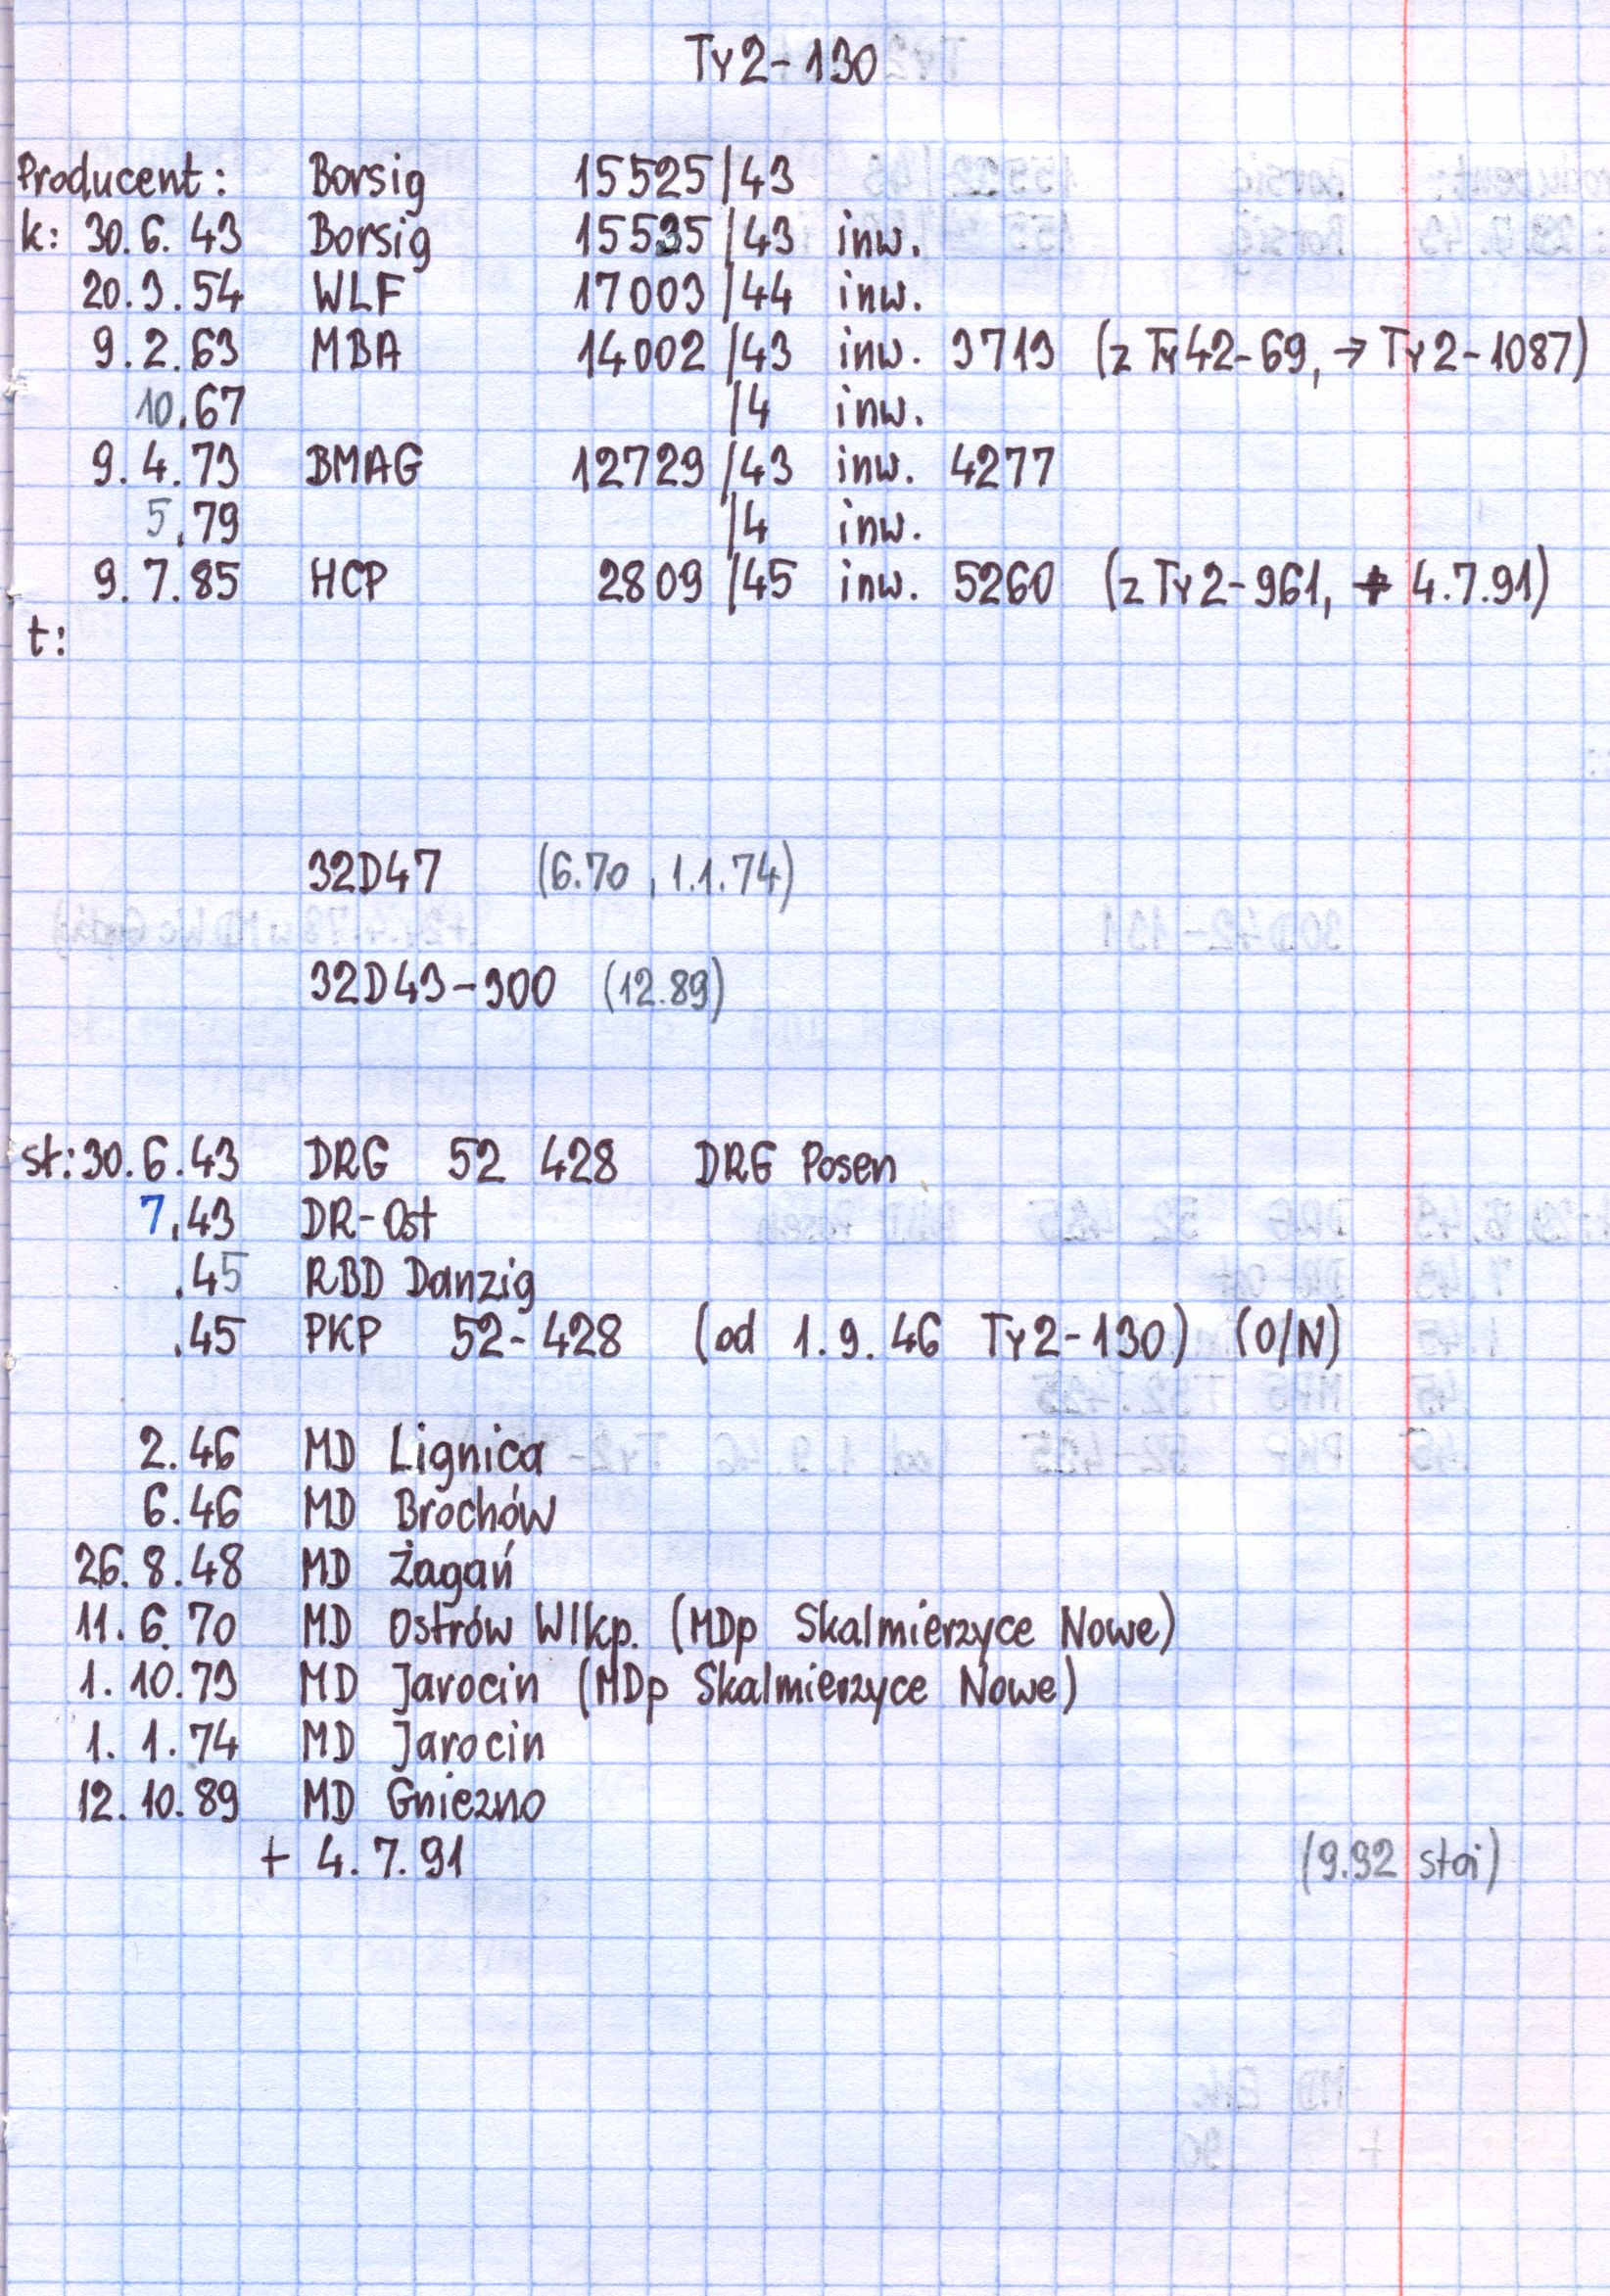 Ty2-130
Producent: Borsig 15525/43
k: 30.6.43 Borsig 15535/43 inw.
20.3.54 WLF 17003/44 inw.
9.2.63 MBA 14002/43 inw. 3713 (z Ty42-69, → Ty2-1087)
10.67 /4 inw.
9.4.73 BMAG 12729/43 inw. 4277
5.79 /4 inw.
9.7.85 HCP 2809/45 inw. 5260 (z Ty2-961, + 4.7.91)
t:
32D47 (6.70, 1.1.74)
32D43-300 (12.89)
st: 30.6.43 DRG 52 428 DRG Posen
7.43 DR-Ost
.45 RBD Danzig
.45 PKP 52-428 (od 1.9.46 Ty2-130) (O/N)
2.46 MD Lignica
6.46 MD Brochów
26.8.48 MD Żagań
11.6.70 MD Ostrów Wlkp. (MDp Skalmierzyce Nowe)
1.10.73 MD Jarocin (MDp Skalmierzyce Nowe)
1.1.74 MD Jarocin
12.10.89 MD Gniezno
+ 4.7.91 (9.92 stoi)